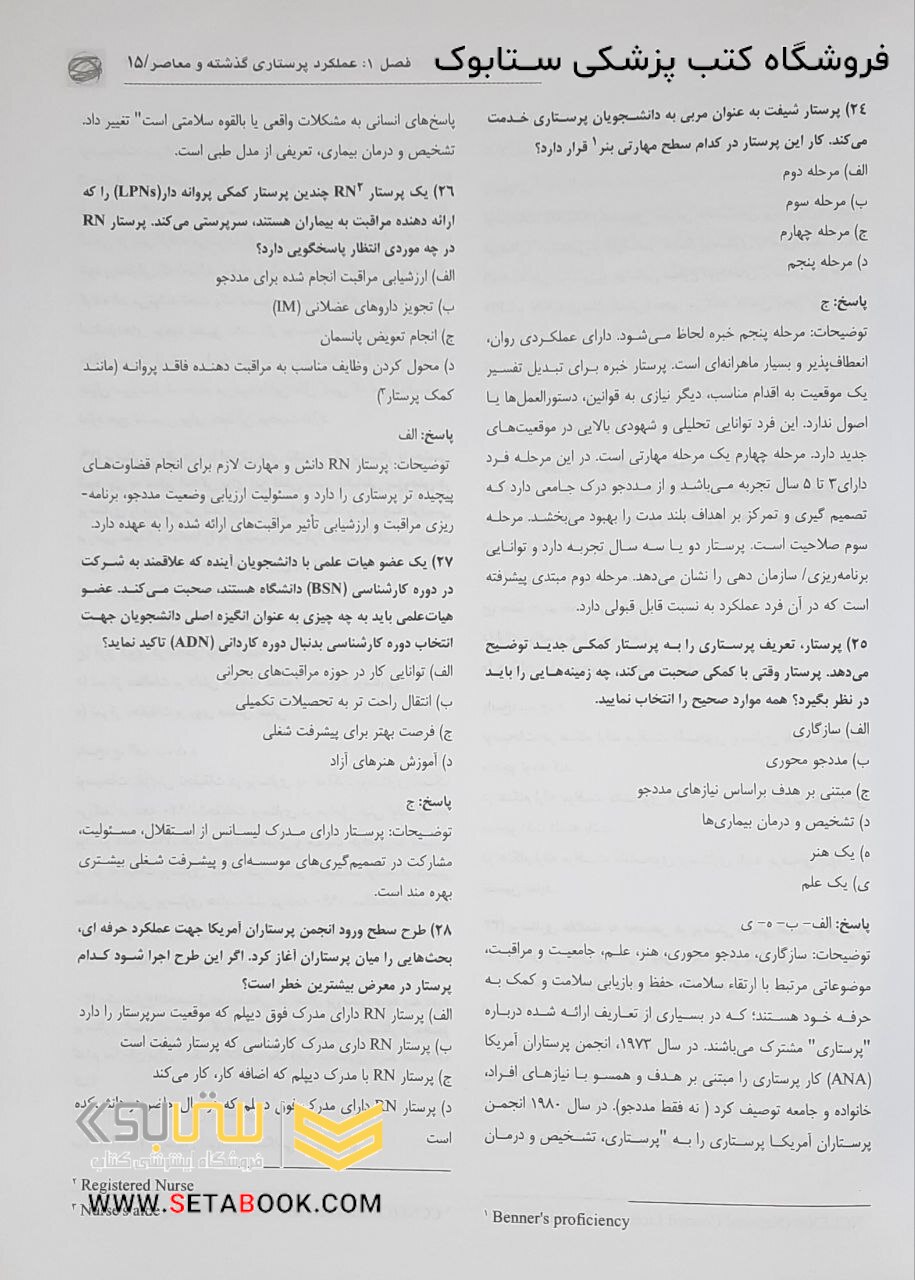 فروشگاه کتب پزشکی ستابوک
فصل ۱: عملکرد پرستاری گذشته و معاصر/۱۵
۲۴) پرستار شیفت به عنوان مربی به دانشجویان پرستاری خدمت
می‌کند. کار این پرستار در کدام سطح مهارتی بنر۱ قرار دارد؟
الف) مرحله دوم
ب) مرحله سوم
ج) مرحله چهارم
د) مرحله پنجم
پاسخ: ج
توضیحات: مرحله پنجم خبره لحاظ می‌شود. دارای عملکردی روان،
انعطاف‌پذیر و بسیار ماهرانه‌ای است. پرستار خبره برای تبدیل تفسیر
یک موقعیت به اقدام مناسب، دیگر نیازی به قوانین، دستورالعمل‌ها یا
اصول ندارد. این فرد توانایی تحلیلی و شهودی بالایی در موقعیت‌های
جدید دارد. مرحله چهارم یک مرحله مهارتی است. در این مرحله فرد
دارای۳ تا ۵ سال تجربه می‌باشد و از مددجو درک جامعی دارد که
تصمیم گیری و تمرکز بر اهداف بلند مدت را بهبود می‌بخشد. مرحله
سوم صلاحیت است. پرستار دو یا سه سال تجربه دارد و توانایی
برنامه‌ریزی/ سازمان دهی را نشان می‌دهد. مرحله دوم مبتدی پیشرفته
است که در آن فرد عملکرد به نسبت قابل قبولی دارد.
۲۵) پرستار، تعریف پرستاری را به پرستار کمکی جدید توضیح
می‌دهد. پرستار وقتی با کمکی صحبت می‌کند، چه زمینه‌هایی را باید
در نظر بگیرد؟ همه موارد صحیح را انتخاب نمایید.
الف) سازگاری
ب) مددجو محوری
ج) مبتنی بر هدف براساس نیازهای مددجو
د) تشخیص و درمان بیماری‌ها
ه) یک هنر
ی) یک علم
پاسخ: الف- ب- ه- ی
توضیحات: سازگاری، مددجو محوری، هنر، علم، جامعیت و مراقبت،
موضوعاتی مرتبط با ارتقاء سلامت، حفظ و بازیابی سلامت و کمک به
حرفه خود هستند؛ که در بسیاری از تعاریف ارائه شده درباره
"پرستاری" مشترک می‌باشند. در سال ۱۹۷۳، انجمن پرستاران آمریکا
(ANA) کار پرستاری را مبتنی بر هدف و همسو با نیازهای افراد،
خانواده و جامعه توصیف کرد ( نه فقط مددجو). در سال ۱۹۸۰ انجمن
پرستاران آمریکا پرستاری را به "پرستاری، تشخیص و درمان
۱ Benner's proficiency
پاسخ‌های انسانی به مشکلات واقعی یا بالقوه سلامتی است" تغییر داد.
تشخیص و درمان بیماری، تعریفی از مدل طبی است.
۲۶) یک پرستار RN۲ چندین پرستار کمکی پروانه دار(LPNs) را که
ارائه دهنده مراقبت به بیماران هستند، سرپرستی می‌کند. پرستار RN
در چه موردی انتظار پاسخگویی دارد؟
الف) ارزشیابی مراقبت انجام شده برای مددجو
ب) تجویز داروهای عضلانی (IM)
ج) انجام تعویض پانسمان
د) محول کردن وظایف مناسب به مراقبت دهنده فاقد پروانه (مانند
کمک پرستار۳)
پاسخ: الف
توضیحات: پرستار RN دانش و مهارت لازم برای انجام قضاوت‌های
پیچیده تر پرستاری را دارد و مسئولیت ارزیابی وضعیت مددجو، برنامه-
ریزی مراقبت و ارزشیابی تأثیر مراقبت‌های ارائه شده را به عهده دارد.
۲۷) یک عضو هیات علمی با دانشجویان آینده که علاقمند به شرکت
در دوره کارشناسی (BSN) دانشگاه هستند، صحبت می‌کند. عضو
هیات‌علمی باید به چه چیزی به عنوان انگیزه اصلی دانشجویان جهت
انتخاب دوره کارشناسی بدنبال دوره کاردانی (ADN) تاکید نماید؟
الف) توانایی کار در حوزه مراقبت‌های بحرانی
ب) انتقال راحت تر به تحصیلات تکمیلی
ج) فرصت بهتر برای پیشرفت شغلی
د) آموزش هنرهای آزاد
پاسخ: ج
توضیحات: پرستار دارای مدرک لیسانس از استقلال، مسئولیت،
مشارکت در تصمیم‌گیری‌های موسسه‌ای و پیشرفت شغلی بیشتری
بهره مند است.
۲۸) طرح سطح ورود انجمن پرستاران آمریکا جهت عملکرد حرفه ای،
بحث‌هایی را میان پرستاران آغاز کرد. اگر این طرح اجرا شود کدام
پرستار در معرض بیشترین خطر است؟
الف) پرستار RN دارای مدرک فوق دیپلم که موقعیت سرپرستار را دارد
ب) پرستار RN داری مدرک کارشناسی که پرستار شیفت است
ج) پرستار RN با مدرک دیپلم که اضافه کار، کار می‌کند
د) پرستار RN دارای مدرک فوق دیپلم که
است
ستابوک
فروشگاه اینترنتی کتاب
۲ Registered Nurse
۳ Nurse's aide
WWW.SETABOOK.COM